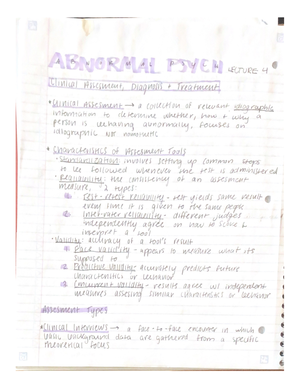 ABNORMAL PSYCH LECTURE 4
Clinical Assessment, Diagnosis + Treatments
• Clinical Assessment → a collection of relevant idiographic
information to determine whether, how + why a
person is behaving abnormally, focuses on
idiographic not nomothetic
• Characteristics of Assessment Tools
- Standardization: involves setting up common steps
to be followed whenever one test is administered
- Reliability: the consistency of an assessment
measure, 2 types:
Test-retest reliability - test yields same result
every time it is given to the same people
Inter-rater reliability - different judges
independently agree on how to score +
interpret a tool
- Validity: accuracy of a tool's result
Face validity - appears to measure what its
supposed to
Predictive validity: accurately predicts future
characteristics or behavior
Concurrent validity - results agree w/ independent
measures assessing similar characteristics or behavior
Assessment Types
• Clinical Interviews → a face-to-face encounter in which
background data are gathered from a specific
theoretical focus